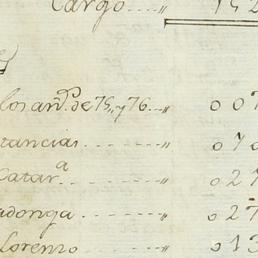 Cargo....〃 152
los añ.s de 75,, y 76...〃 007
tancias.......〃 070
Catar.a........〃 027
adonga.......〃 027
lorenzo.......〃 013